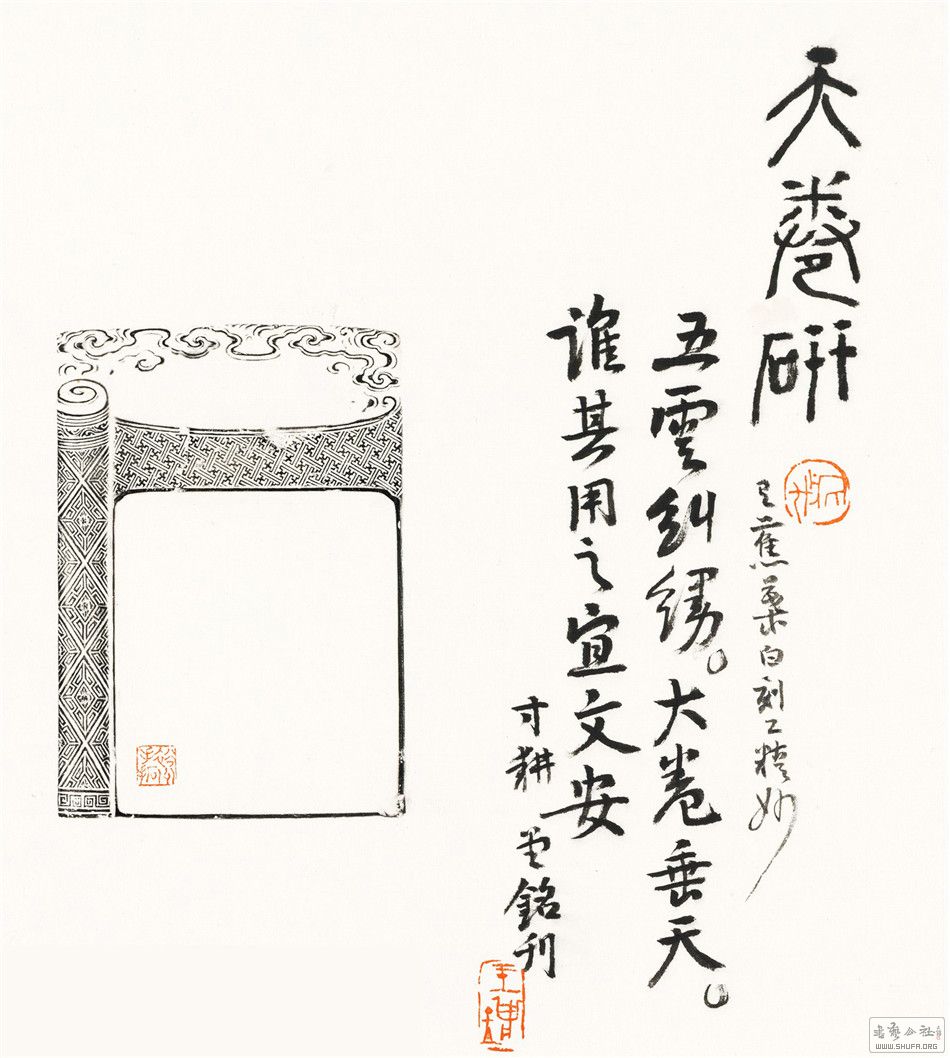 天卷研
蕉葉白刻工精妙
五雲糾縵。大卷垂天。
誰其用之宣文安
寸耕堂銘刊
書藝公社
WWW.SHUFA.ORG